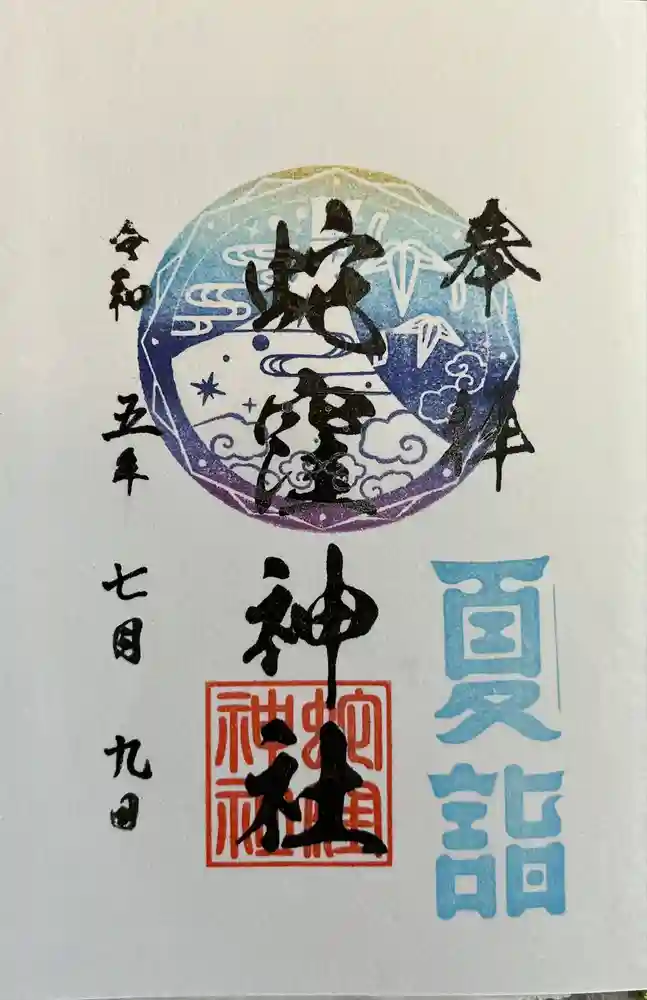 奉拝
夏詣
蛇窪神社
蛇窪
神社
令和五年七月九日